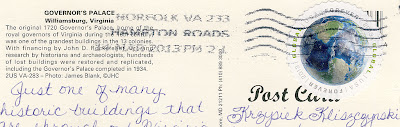 GOVERNOR'S PALACE
Williamsburg, Virginia
The original 1720 Governor's Palace, home of the
royal governors of Virginia during the
was one of the grandest buildings in the 13 colonies.
With financing by John D. Rockefeller and
research by historians and archaeologists, hundreds
of lost buildings were restored and replicated,
including the Governor's Palace completed in 1934.
2US VA-283 – Photo: James Blank, ©JHC
NORFOLK VA 233
HAMPTON ROADS
2013 PM 2
GLOBAL FOREVER
Post
Just one of many
historic buildings that
Krzysiek Kliszczynski